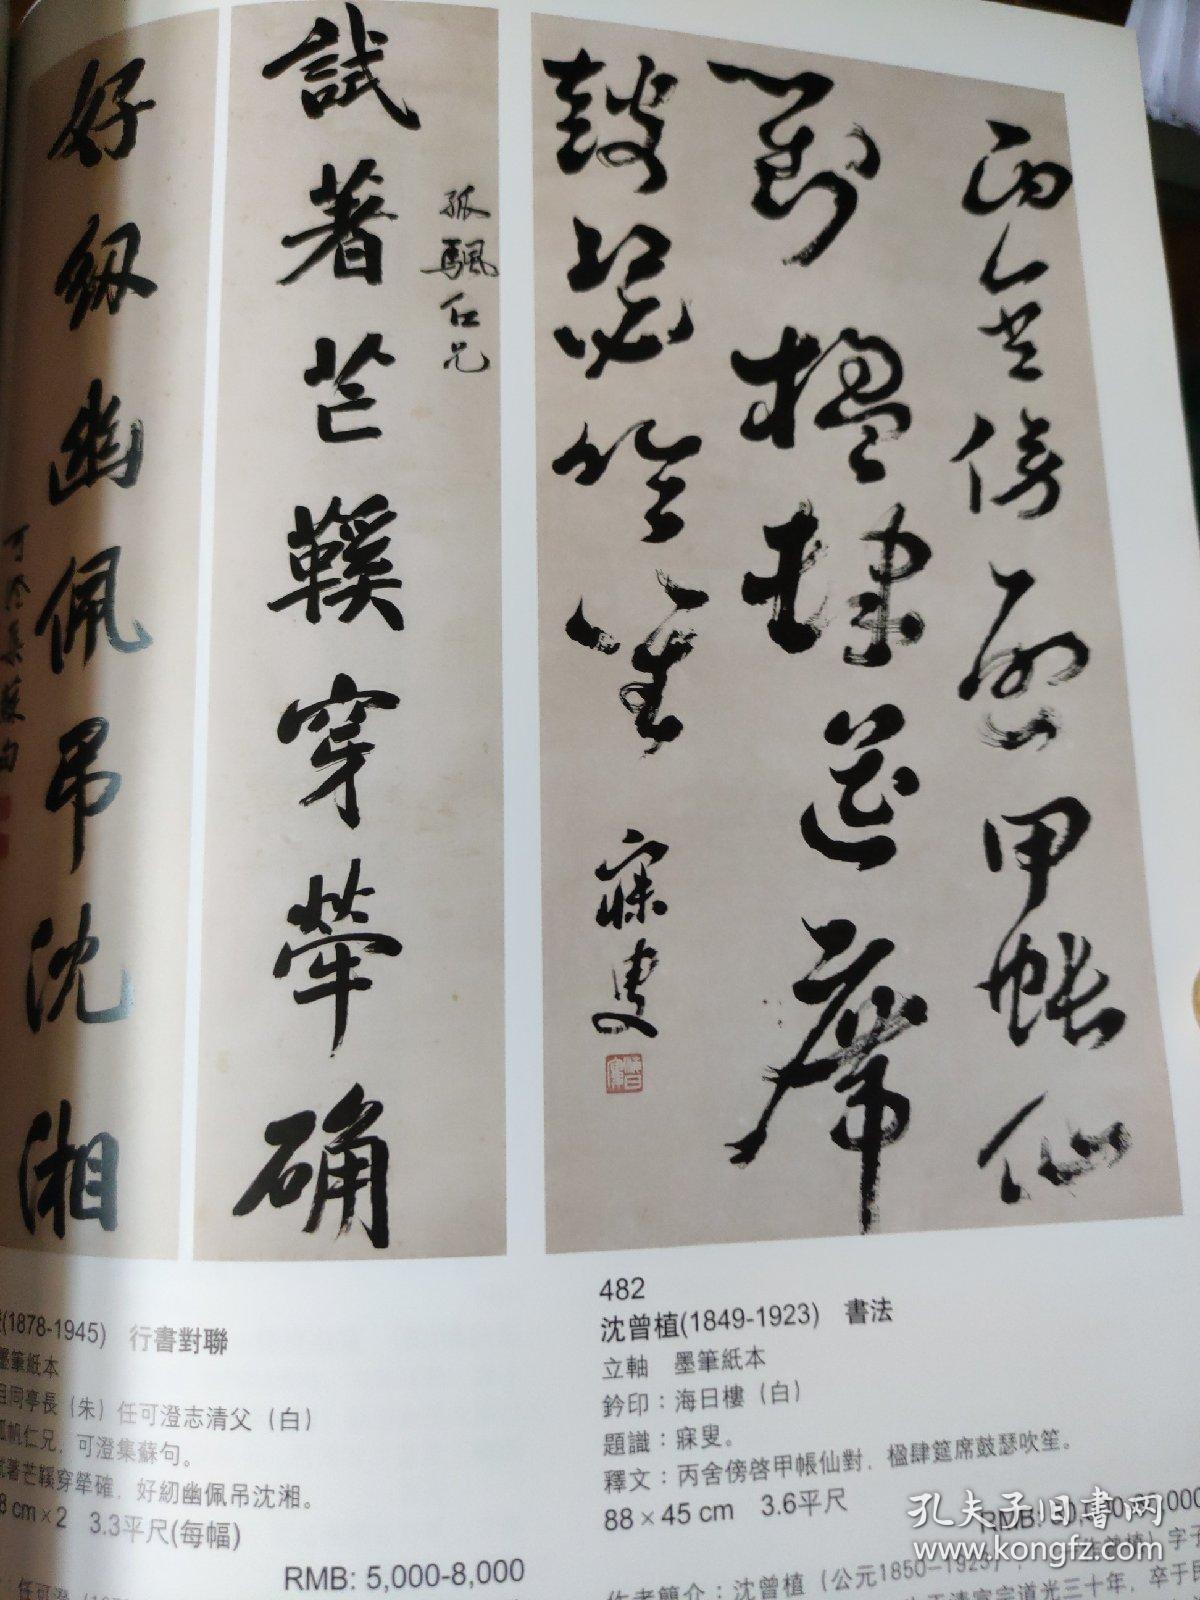 丙舍傍啓甲帳仙
對楹肆筵席
鼓瑟吹笙
寐叟
孤颿仁兄
試著芒鞵穿犖确
好紉幽佩吊沈湘
可澄集蘇句
482
沈曾植(1849-1923) 書法
立軸 墨筆紙本
鈐印：海日樓（白）
題識：寐叟。
釋文：丙舍傍啓甲帳仙對．楹肆筵席鼓瑟吹笙。
88×45 cm 3.6平尺
RMB:
作者簡介：沈曾植（公元1850-1923）
(1878-1945) 行書對聯
墨筆紙本
同亭長（朱）任可澄志清父（白）
孤帆仁兄．可澄集蘇句。
試著芒鞵穿犖確．好紉幽佩吊沈湘。
8 cm×2 3.3平尺(每幅)
RMB: 5,000-8,000
任可澄
孔夫子旧书网
www.kongfz.com